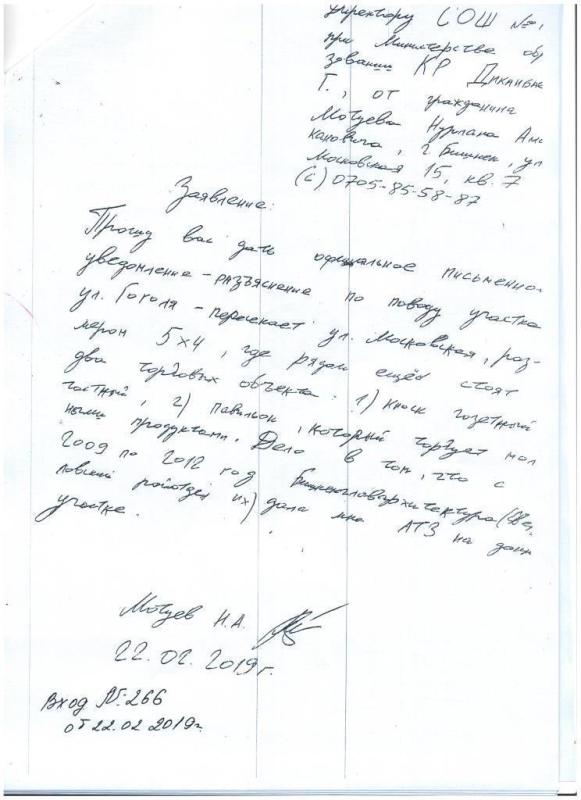 директору СОШ №
при Министерстве об
зования КР
Т., от гражданина
Нурлана
кановича, г. Бишкек, ул
Московская 15, кв. 7
0705-85-58-87
Заявление.
Прошу вас дать официальное письменно
уведомление-разъяснение по поводу участка
ул. Гоголя - пересекает ул. Московская, раз-
мером 5x4, где рядом ещё стоят
два торговых объекта. 1) киоск газетный
частный, 2) павильон, который торгует мол
ными продуктами. Дело в том, что с
2009 по 2012 год
их) дала мне АТЗ на дан
участке.
Н.А.
22.02.2019г.
Вход №:266
от 22.02 2019г.